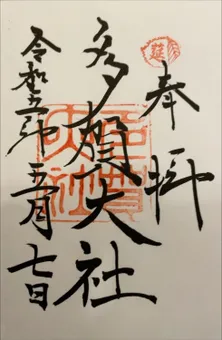 奉拝
多賀大社
令和五年五月七日
多賀
大社